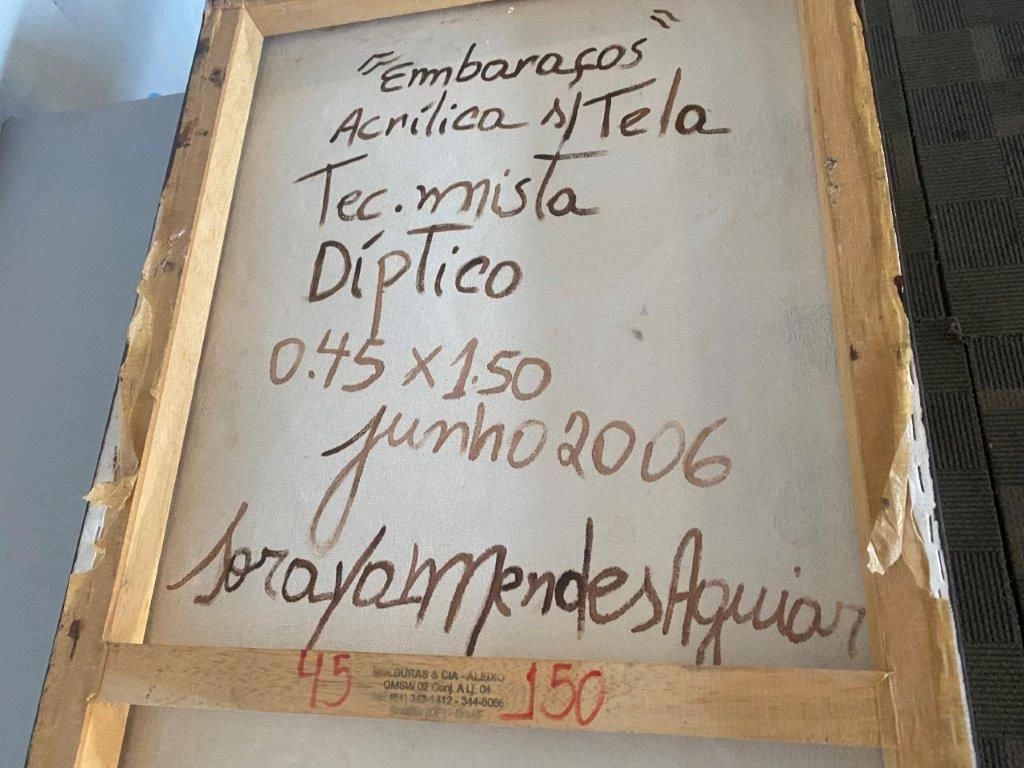 "Embaraços"
Acrílica s/Tela
Tec. mista
Díptico
0.45 x 1.50
junho 2006
Soraya Mendes Aguiar
45
MOLDURAS & CIA - ALEIXO
QMSW 02 Conj. A Lj. 04
(61) 343-1412 - 344-8066
Brasília (DF) - Brasil
150